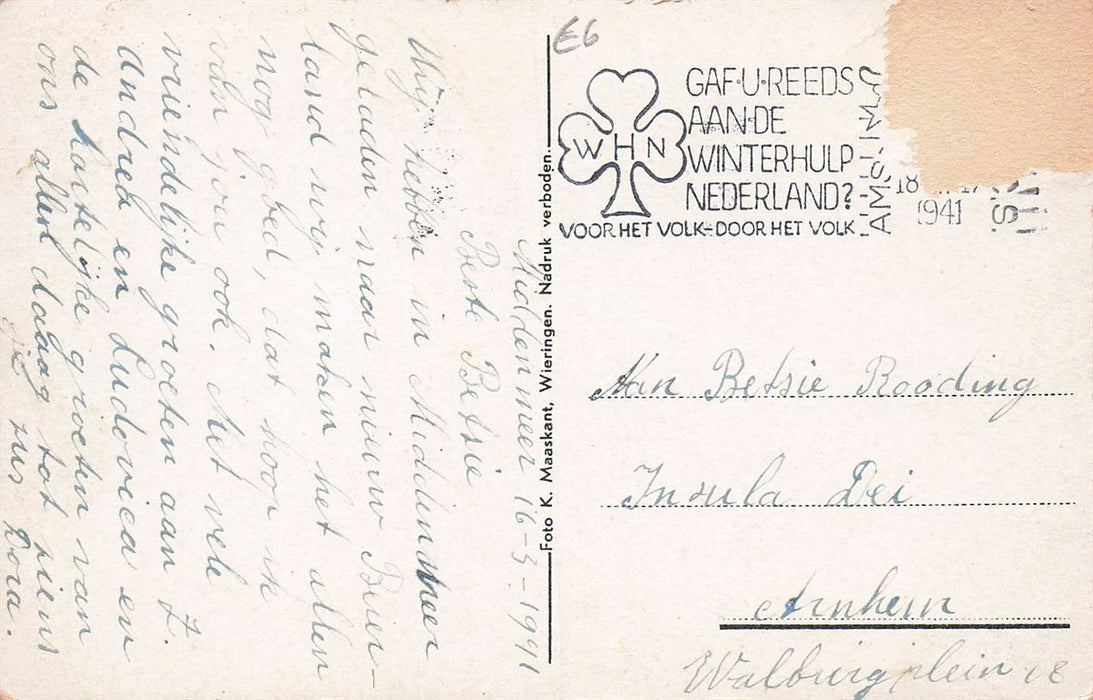 Middenmeer 16-3-1941
Beste Betsie
Wij hebben in Middenmeer
geladen naar nieuw Beier-
land wij maken het allen
nog goed, dat hoop ik
van jou ook. Met vele
vriendelijke groeten aan Z.
Andrea en Ludovica en
de hartelijke groeten van
ons allen daaag tot ziens
je zus Dora.
Foto K. Maaskant, Wieringen. Nadruk verboden.
E6
WHN
GAF·U·REEDS
AAN·DE
WINTERHULP
NEDERLAND?
VOOR HET VOLK-DOOR HET VOLK
18
1941
Aan Betsie Rooding
Insula Dei
Arnhem
Walburgplein 18